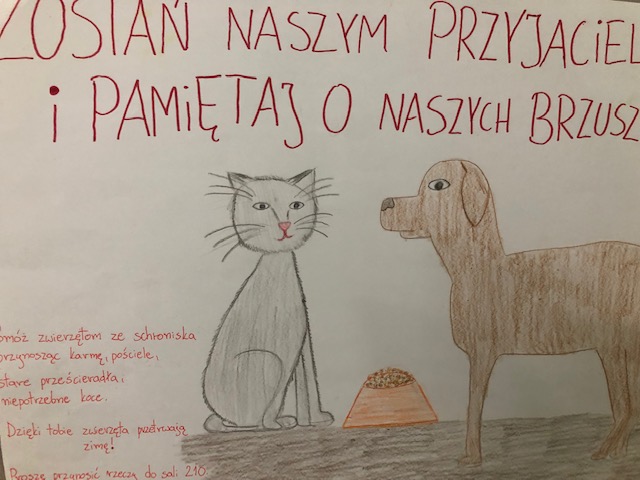 ZOSTAŃ NASZYM PRZYJACIEL
i PAMiĘTAJ O NASZYCH BRZUSZ
omóż zwierzętom ze schroniska
przynosząc karmę, pościele,
stare prześcieradła i
niepotrzebne koce.
Dzięki tobie zwierzęta przetrwają
zimę!
Proszę przynosić rzeczy do sali 210.